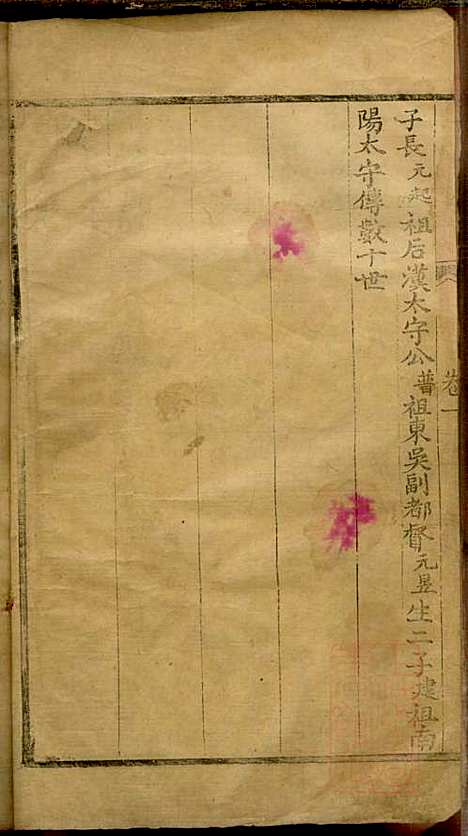 子長元起祖后漢太守公普祖東吳副都督元昱生二子建祖南
陽太守傳數十世
卷一